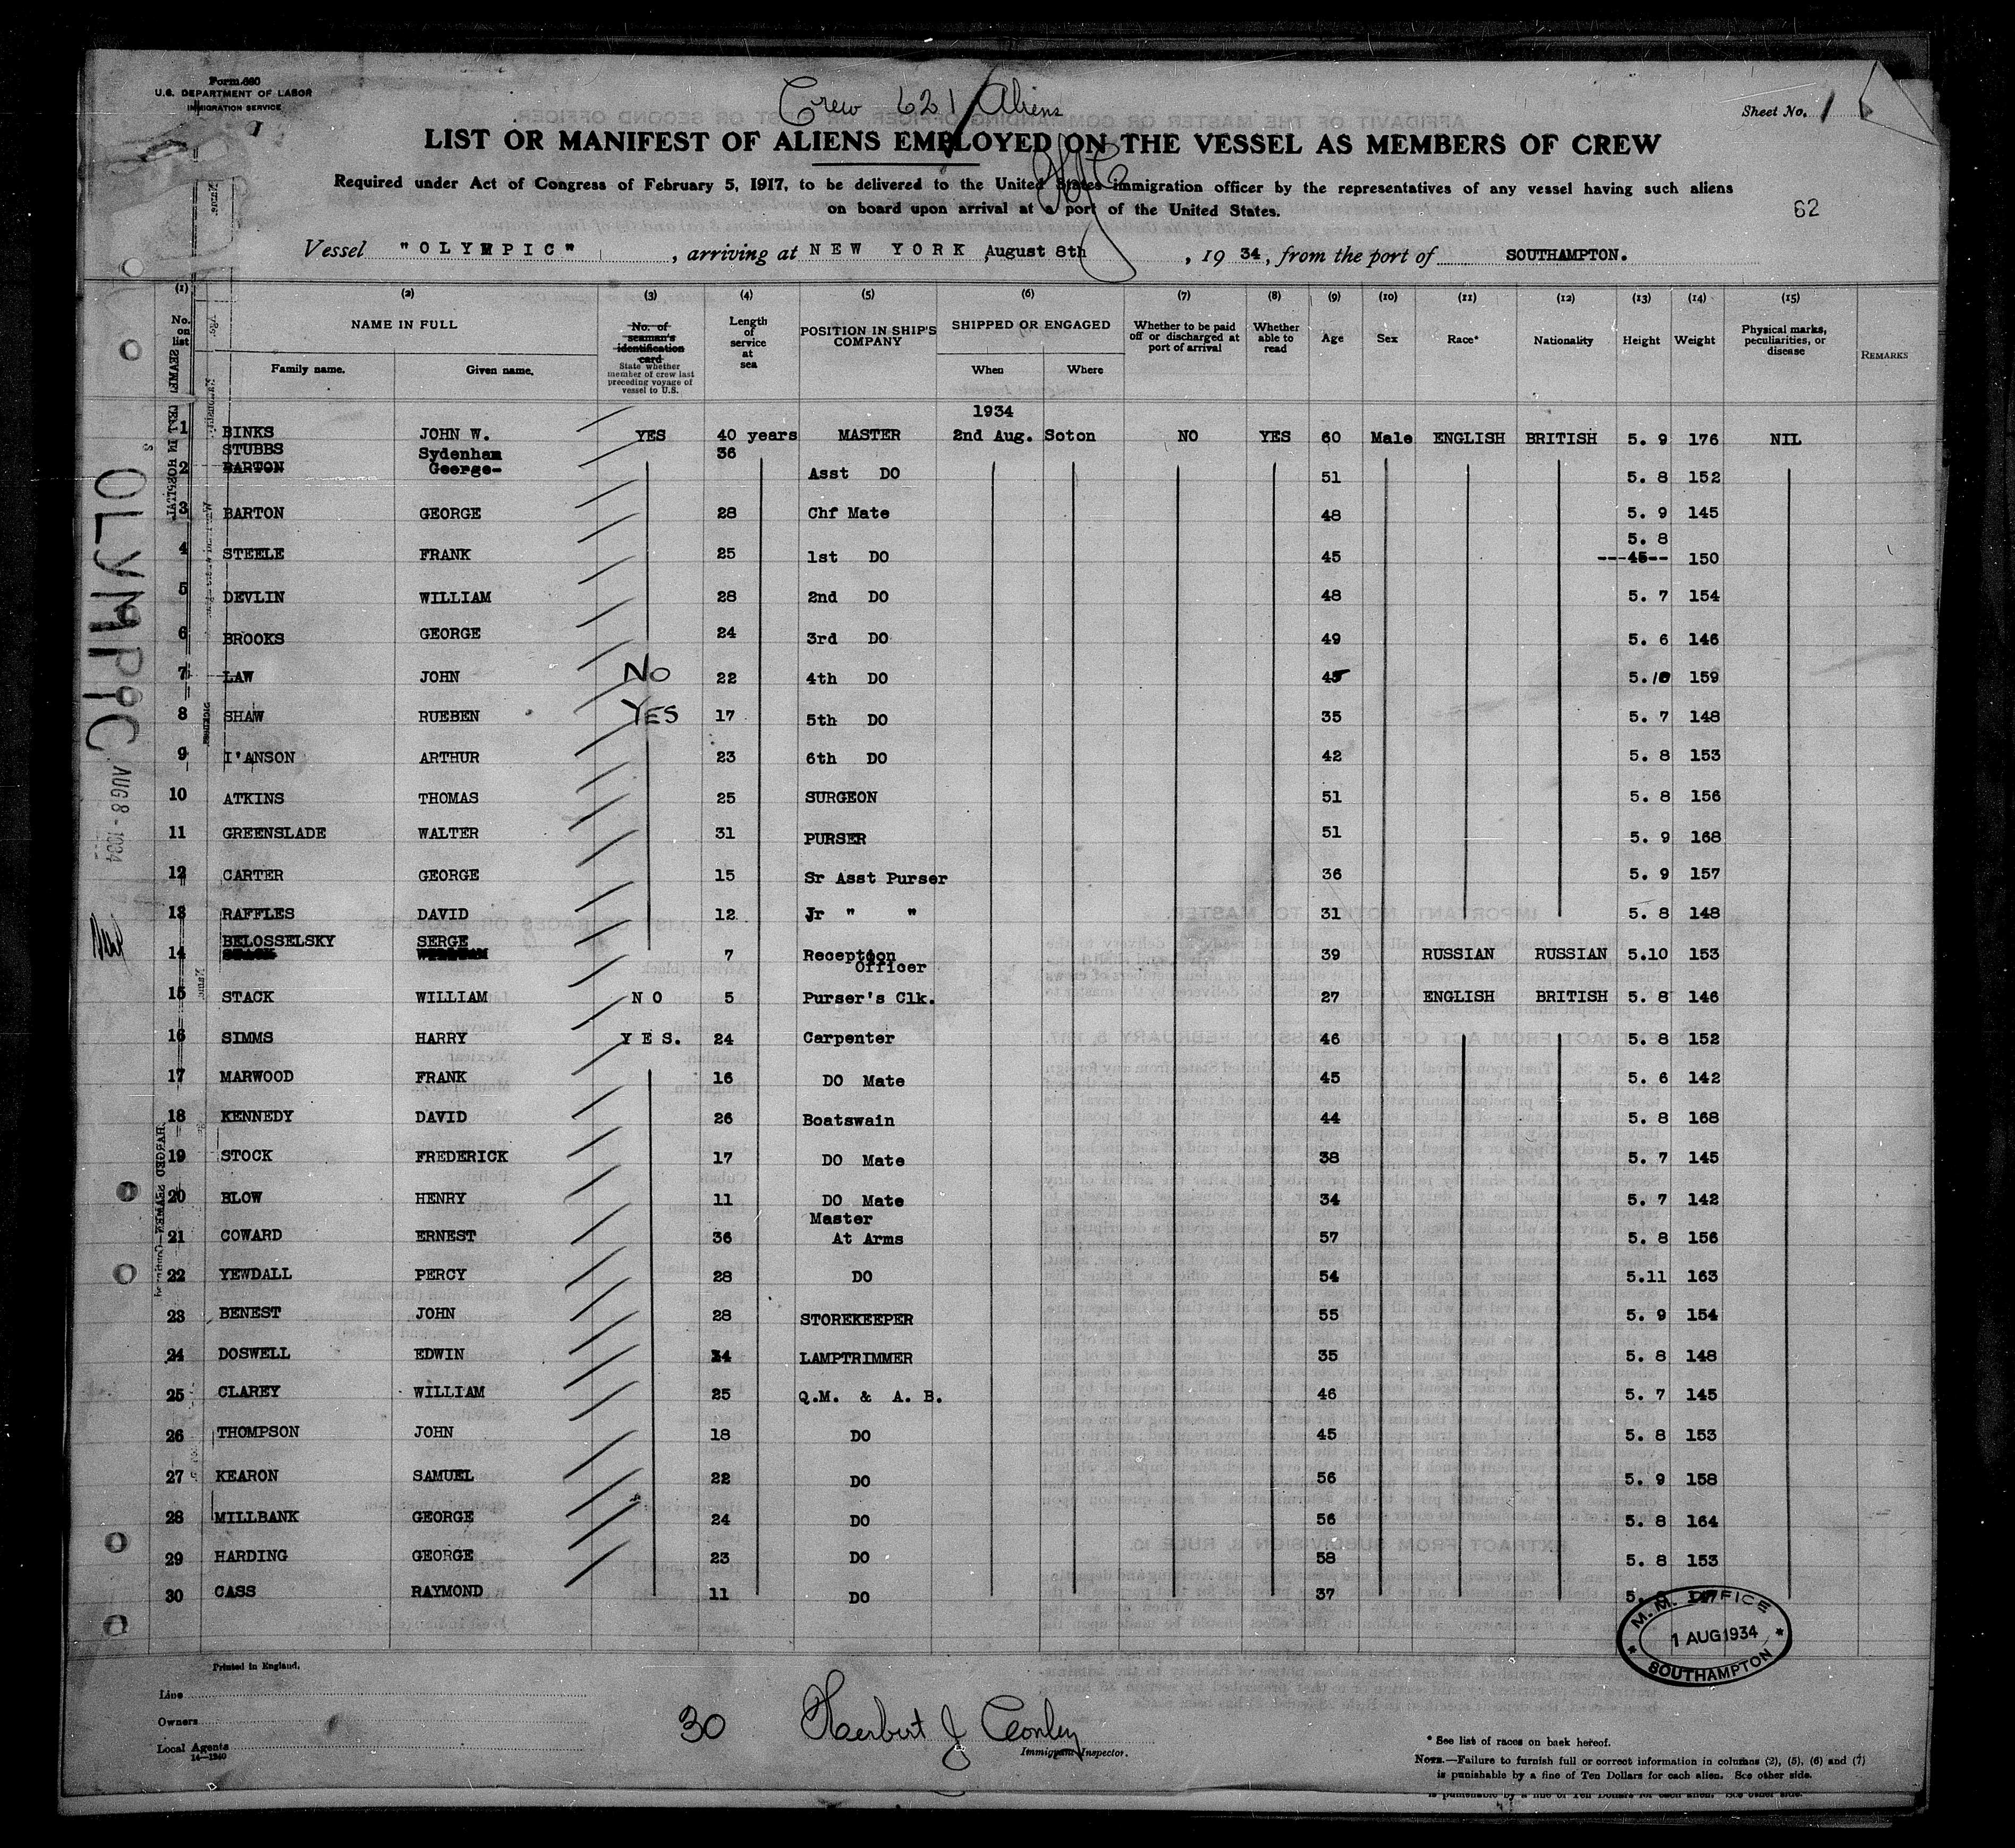 Form 680
U.S. DEPARTMENT OF LABOR
IMMIGRATION SERVICE
Crew 621 Aliens
Sheet No. 1
LIST OR MANIFEST OF ALIENS EMPLOYED ON THE VESSEL AS MEMBERS OF CREW
Required under Act of Congress of February 5, 1917, to be delivered to the United States immigration officer by the representatives of any vessel having such aliens
on board upon arrival at a port of the United States.
62
Vessel "OLYMPIC", arriving at NEW YORK, August 8th, 1934, from the port of SOUTHAMPTON.
(1) (2) (3) (4) (5) (6) (7) (8) (9) (10) (11) (12) (13) (14) (15)
No. on list
NAME IN FULL
Family name. Given name.
No. of seaman's identification card
State whether member of crew last preceding voyage of vessel to U.S.
Length of service at sea
POSITION IN SHIP'S COMPANY
SHIPPED OR ENGAGED
When Where
Whether to be paid off or discharged at port of arrival
Whether able to read
Age
Sex
Race*
Nationality
Height
Weight
Physical marks, peculiarities, or disease
REMARKS
1934
1 BINKS JOHN W. YES 40 years MASTER 2nd Aug. Soton NO YES 60 Male ENGLISH BRITISH 5. 9 176 NIL
STUBBS Sydenham 36
2 BARTON George Asst DO 51 5. 8 152
3 BARTON GEORGE 28 Chf Mate 48 5. 9 145
5. 8
4 STEELE FRANK 25 1st DO 45 ---45-- 150
5 DEVLIN WILLIAM 28 2nd DO 48 5. 7 154
6 BROOKS GEORGE 24 3rd DO 49 5. 6 146
7 LAW JOHN No 22 4th DO 45 5.10 159
8 SHAW RUEBEN YES 17 5th DO 35 5. 7 148
9 I'ANSON ARTHUR 23 6th DO 42 5. 8 153
10 ATKINS THOMAS 25 SURGEON 51 5. 8 156
11 GREENSLADE WALTER 31 PURSER 51 5. 9 168
12 CARTER GEORGE 15 Sr Asst Purser 36 5. 9 157
13 RAFFLES DAVID 12 Jr " " 31 5. 8 148
BELOSSELSKY SERGE
14 STACK WILLIAM 7 Reception Officer 39 RUSSIAN RUSSIAN 5.10 153
15 STACK WILLIAM N O 5 Purser's Clk. 27 ENGLISH BRITISH 5. 8 146
16 SIMMS HARRY Y E S. 24 Carpenter 46 5. 8 152
17 MARWOOD FRANK 16 DO Mate 45 5. 6 142
18 KENNEDY DAVID 26 Boatswain 44 5. 8 168
19 STOCK FREDERICK 17 DO Mate 38 5. 7 145
20 BLOW HENRY 11 DO Mate 34 5. 7 142
21 COWARD ERNEST 36 Master At Arms 57 5. 8 156
22 YEWDALL PERCY 28 DO 54 5.11 163
23 BENEST JOHN 28 STOREKEEPER 55 5. 9 154
24 DOSWELL EDWIN 14 LAMPTRIMMER 35 5. 8 148
25 CLAREY WILLIAM 25 Q.M. & A. B. 46 5. 7 145
26 THOMPSON JOHN 18 DO 45 5. 8 153
27 KEARON SAMUEL 22 DO 56 5. 9 158
28 MILLBANK GEORGE 24 DO 56 5. 8 164
29 HARDING GEORGE 23 DO 58 5. 8 153
30 CASS RAYMOND 11 DO 37 5.
M.M. OFFICE
1 AUG 1934
SOUTHAMPTON
S OLYMPIC AUG 8 - 1934
Printed in England.
Line
Owners
Local Agents
14—1240
30
Herbert J Conley
Immigrant Inspector.
* See list of races on back hereof.
NOTE.—Failure to furnish full or correct information in columns (2), (5), (6) and (7)
is punishable by a fine of Ten Dollars for each alien. See other side.
is punishable by a fine of Ten Dollars for each alien. See other side.